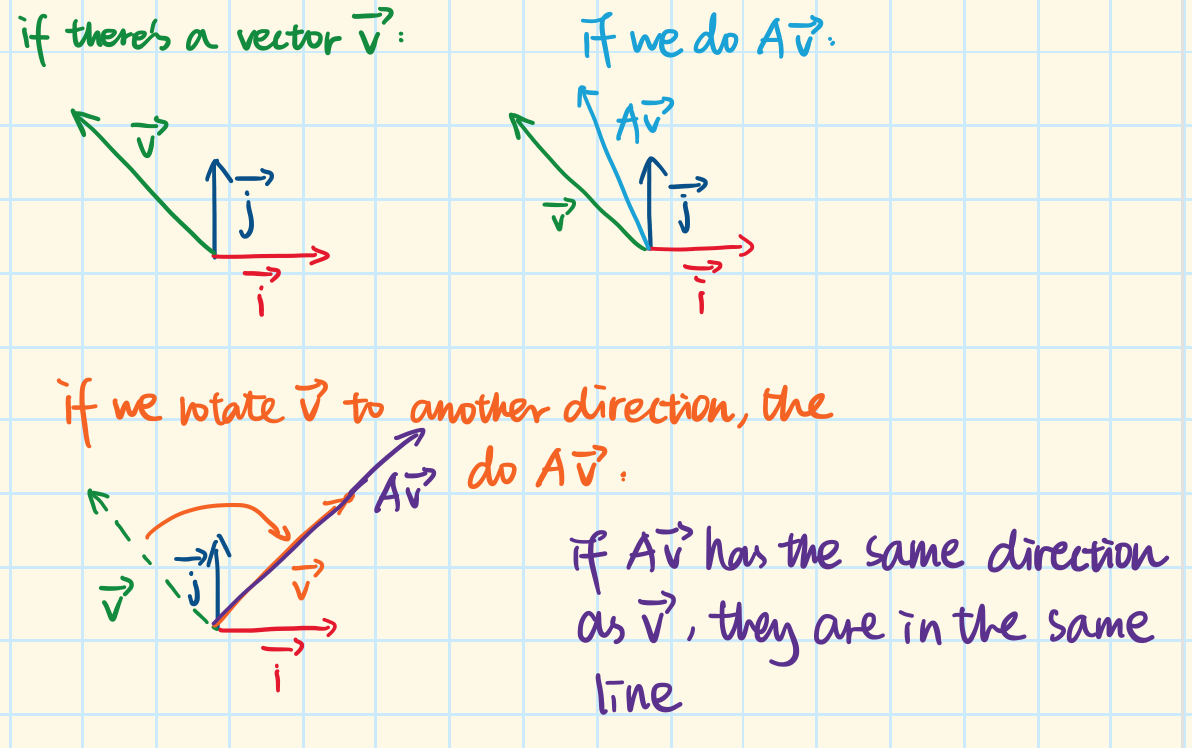 if there's a vector v⃗:
if we do Av⃗:
v⃗
j⃗
i⃗
Av⃗
v⃗
j⃗
i⃗
if we rotate v⃗ to another direction, the
do Av⃗:
Av⃗
v⃗
j⃗
v⃗
i⃗
if Av⃗ has the same direction
as v⃗, they are in the same
line